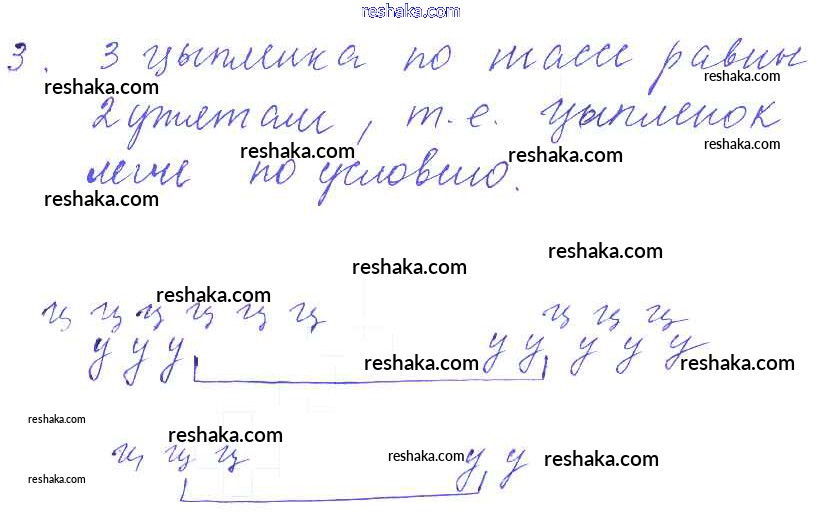 reshaka.com
3. 3 цыпленка по массе равны
reshaka.com reshaka.com
2 утятам, т.е. цыпленок
reshaka.com reshaka.com reshaka.com
легче по условию.
reshaka.com
reshaka.com reshaka.com
reshaka.com
ц ц ц ц ц ц ц ц ц
у у у у у у у у
reshaka.com reshaka.com
reshaka.com reshaka.com
ц ц ц у у
reshaka.com reshaka.com
reshaka.com